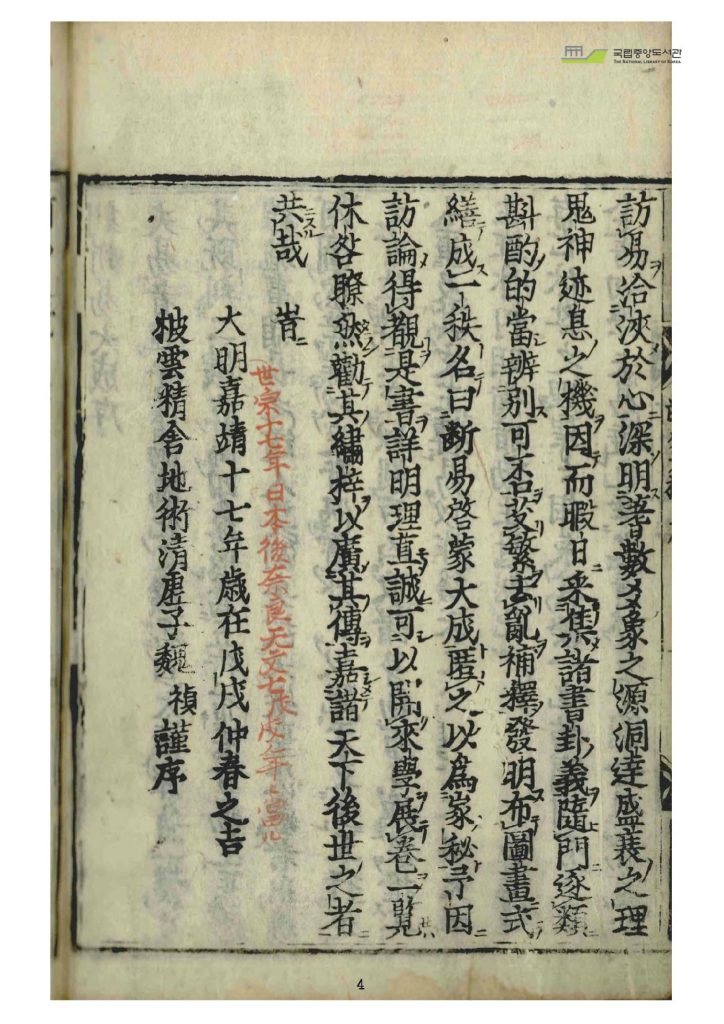 국립중앙도서관
THE NATIONAL LIBRARY OF KOREA
訪易洽浹於心深明蓍數爻象之源洞達盛衰之理
鬼神迹息之機因而暇日采集諸書卦義隨門逐類
斟酌的當辨別可否芟繁去亂補釋發明布圖畫式
繕成一秩名曰斷易啓蒙大成匿之以爲家秘予因
訪論得觀是書詳明理直誠可以開來學展卷一覽
休咎瞭然勸其繡梓以廣其傳嘉諸天下後世之者
共哉 旹
世宗十七年日本後奈良天文七戊戌年ニ當ル
大明嘉靖十七年歲在戊戌仲春之吉
披雲精舍地術清虛子魏 禎 謹序
4